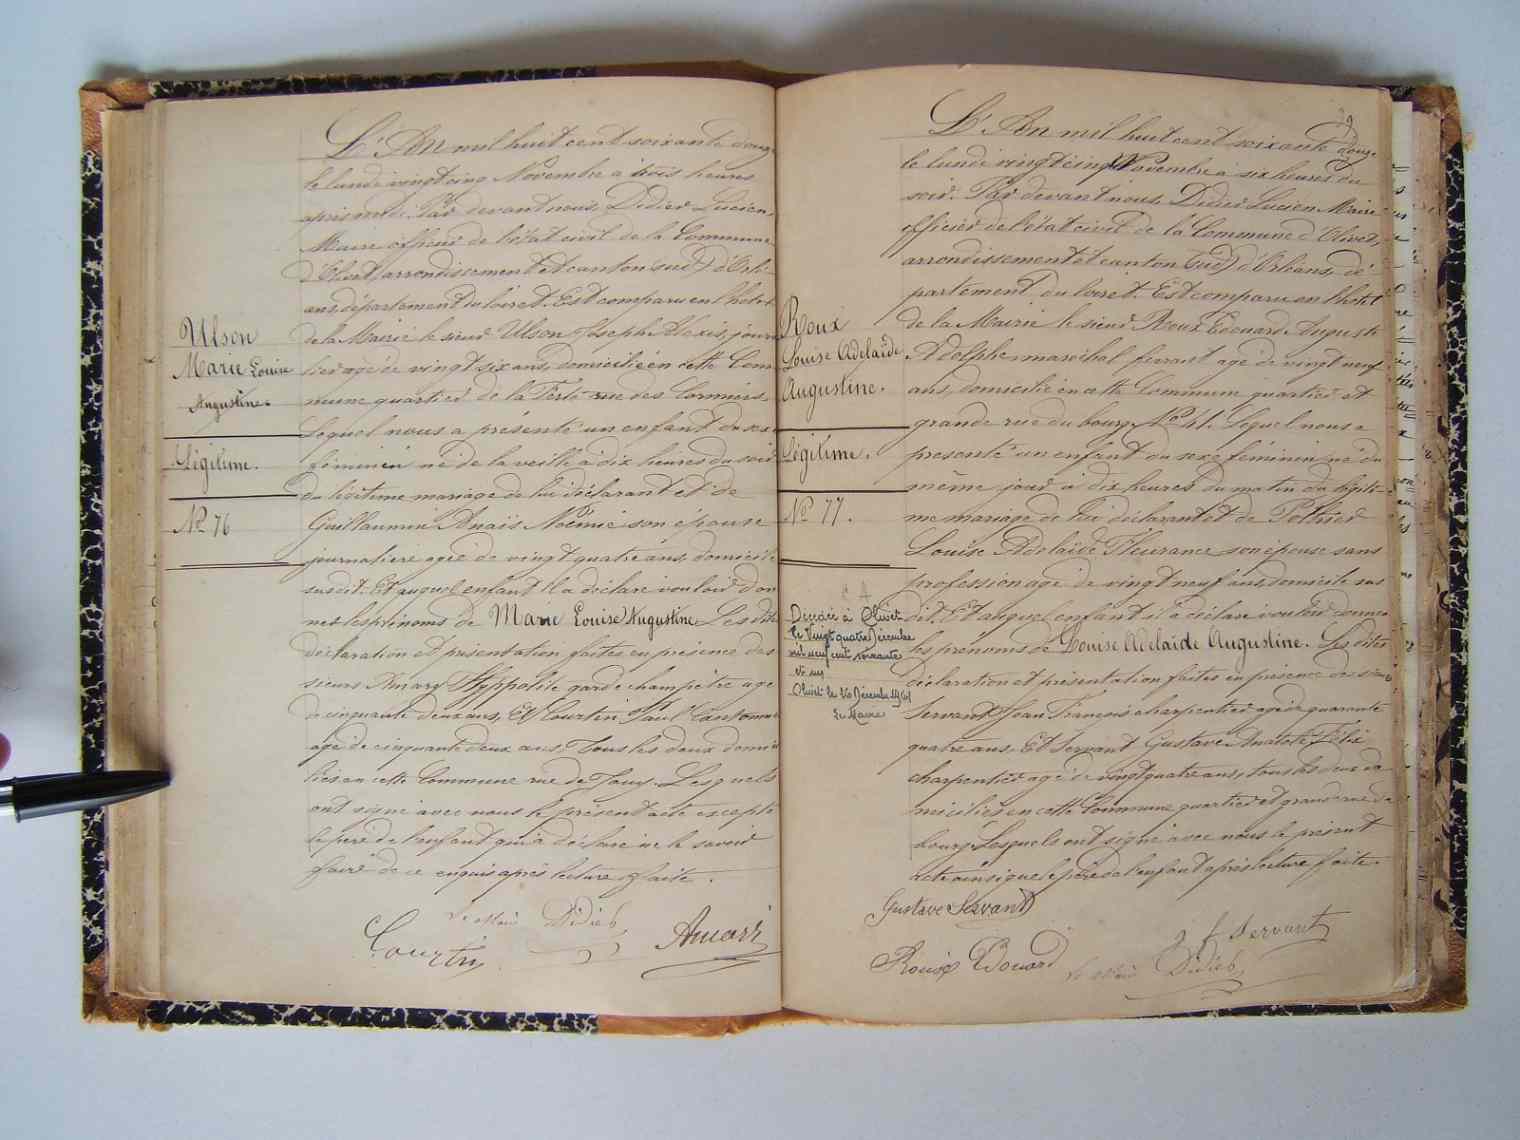 L'An mil huit cent soixante douze
le lundi vingt cinq Novembre à trois heures
après midi. Par devant nous Didier Lucien,
Maire officier de l'état civil de la Commune
d'Olivet, arrondissement et canton (sud) d'Orlé-
ans, département du loiret. Est comparu en l'hôtel
de la Mairie le sieur Ulson Joseph Alexis, journa
lier agé de vingt six ans, domicilié en cette Com
mune quartier de la Ferté rue des Cormiers
Lequel nous a présenté un enfant du sexe
féminin né de la veille à dix heures du soir
du légitime mariage de lui déclarant et de
Guillaumin Anaïs Noémie son épouse
journalière agée de vingt quatre ans, domicile
susdit. Et auquel enfant il a déclaré vouloir don
ner les prénoms de Marie Louise Augustine Les dites
déclaration et présentation faites en présence des
sieurs Amary Hyppolite garde champêtre agé
de cinquante deux ans, Et Courtin Paul Cantonnier
agé de cinquante deux ans, Tous les deux domici
liés en cette Commune rue de Lesquels
ont signé avec nous le présent acte excepté
le père de l'enfant qui a déclaré ne le savoir
faire de ce enquis après lecture faite.
Ulson
Marie Louise
Augustine
Légitime.
No 76
Le Maire Didier
Courtin
Amary
39
L'An mil huit cent soixante douze
le lundi vingt cinq Novembre à six heures du
soir. Par devant nous Didier Lucien Maire
officier de l'état civil de la Commune d'Olivet,
arrondissement et canton (sud) d'Orléans, dé
partement du loiret. Est comparu en l'hôtel
de la Mairie le sieur Roux Edouard Auguste
Adolphe maréchal ferrant agé de vingt neuf
ans, domicilié en cette Commune quartier et
grande rue du bourg No 41. Lequel nous a
présenté un enfant du sexe féminin né du
même jour à dix heures du matin du légiti-
me mariage de lui déclarant et de Pothier
Louise Adelaïde Fleurance son épouse sans
profession agée de vingt neuf ans, domicile sus
dit. Et auquel enfant il a déclaré vouloir donner
les prénoms de Louise Adelaïde Augustine. Les dites
déclaration et présentation faites en présence des sieurs
Servant Jean François charpentier agé de quarante
quatre ans, Et Servant Gustave Anatole Félix
charpentier agé de vingt quatre ans, tous les deux do
miciliés en cette Commune quartier et grande rue du
bourg. Lesquels ont signé avec nous le présent
acte ainsi que le père de l'enfant après lecture faite.
Roux
Louise Adelaïde
Augustine.
Légitime.
No 77.
Décédée à Olivet
le vingt quatre Décembre
mil neuf cent soixante
et un
Olivet le 26 Décembre 1961
Le Maire
Gustave Servant
J F Servant
Roux Edouard
Le Maire Didier